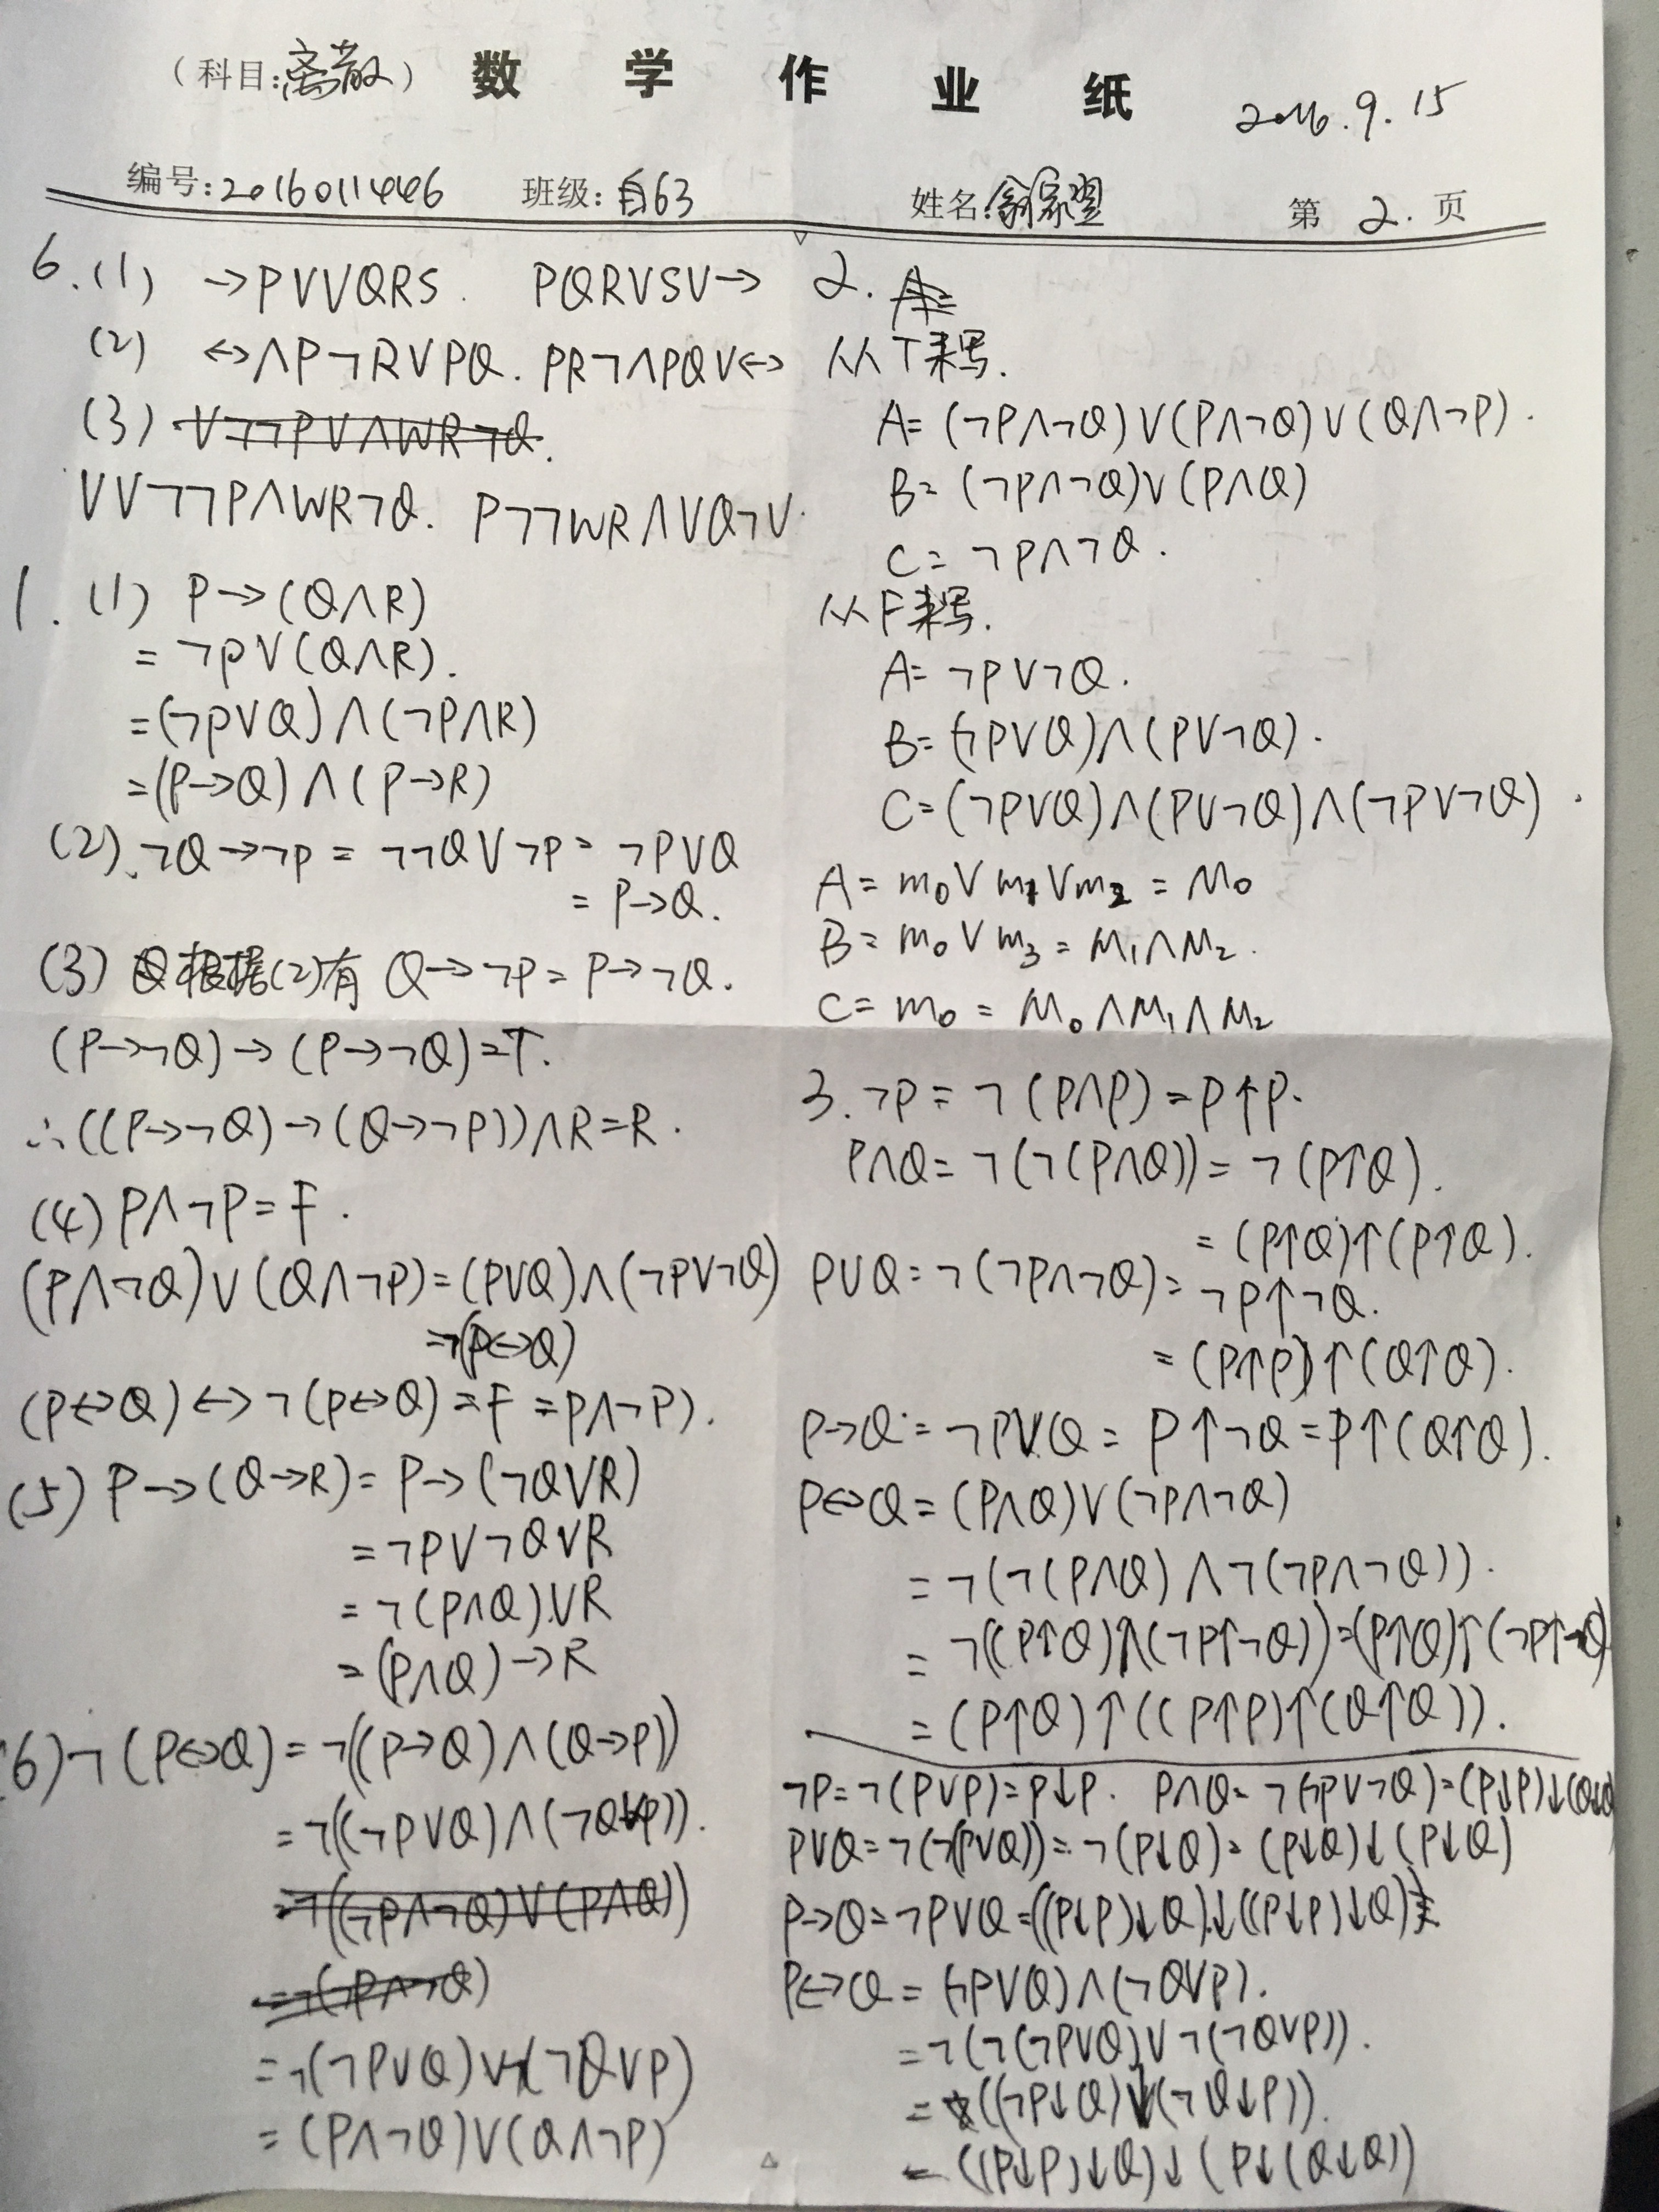 （科目：离散） 数 学 作 业 纸 2016.9.15
编号：2016011446 班级：自63 姓名：翁家翌 第 2. 页
6.(1) →P∨∨QRS. PQR∨S∨→
(2) ↔∧P¬R∨PQ. PR¬∧PQ∨↔
(3) ∨¬¬P∨∧WR¬Q.
∨∨¬¬P∧WR¬Q. P¬¬WR∧∨Q¬∨.
1.(1) P→(Q∧R)
= ¬P∨(Q∧R).
=(¬P∨Q)∧(¬P∧R)
=(P→Q)∧(P→R)
(2). ¬Q→¬P = ¬¬Q∨¬P = ¬P∨Q
= P→Q.
(3) 根据(2)有 Q→¬P = P→¬Q.
(P→¬Q)→(P→¬Q)=T.
∴((P→¬Q)→(Q→¬P))∧R=R.
(4) P∧¬P=F.
(P∧¬Q)∨(Q∧¬P)=(P∨Q)∧(¬P∨¬Q)
=¬(P↔Q)
(P↔Q)↔¬(P↔Q)=F=P∧¬P).
(5) P→(Q→R)= P→(¬Q∨R)
=¬P∨¬Q∨R
=¬(P∧Q)∨R
=(P∧Q)→R
(6)¬(P↔Q)=¬((P→Q)∧(Q→P))
=¬((¬P∨Q)∧(¬Q∨P)).
=¬((¬P∧¬Q)∨(P∧Q))
=¬(¬P∧¬Q)
=¬(¬P∨Q)∨¬(¬Q∨P)
=(P∧¬Q)∨(Q∧¬P)
2. A=
从T来写.
A= (¬P∧¬Q)∨(P∧¬Q)∨(Q∧¬P).
B= (¬P∧¬Q)∨(P∧Q)
C= ¬P∧¬Q.
从F来写.
A= ¬P∨¬Q.
B= (¬P∨Q)∧(P∨¬Q).
C=(¬P∨Q)∧(P∨¬Q)∧(¬P∨¬Q).
A= m₀∨m₁∨m₂ = M₀
B= m₀∨m₃ = M₁∧M₂.
C= m₀ = M₀∧M₁∧M₂
3. ¬P= ¬(P∧P)=P↑P.
P∧Q= ¬(¬(P∧Q))= ¬(P↑Q).
= (P↑Q)↑(P↑Q).
P∨Q=¬(¬P∧¬Q)= ¬P↑¬Q.
= (P↑P)↑(Q↑Q).
P→Q= ¬P∨Q = P↑¬Q=P↑(Q↑Q).
P↔Q= (P∧Q)∨(¬P∧¬Q)
= ¬(¬(P∧Q)∧¬(¬P∧¬Q)).
= ¬((P↑Q)∧(¬P↑¬Q))=(P↑Q)↑(¬P↑¬Q)
= (P↑Q)↑((P↑P)↑(Q↑Q)).
¬P=¬(P∨P)=P↓P. P∧Q= ¬(¬P∨¬Q)=(P↓P)↓(Q↓Q)
P∨Q=¬(¬(P∨Q))=¬(P↓Q)=(P↓Q)↓(P↓Q)
P→Q=¬P∨Q=((P↓P)↓Q)↓((P↓P)↓Q)
P↔Q= (¬P∨Q)∧(¬Q∨P).
=¬(¬(¬P∨Q)∨¬(¬Q∨P)).
= ((¬P↓Q)↓(¬Q↓P)).
= ((P↓P)↓Q)↓(P↓(Q↓Q))